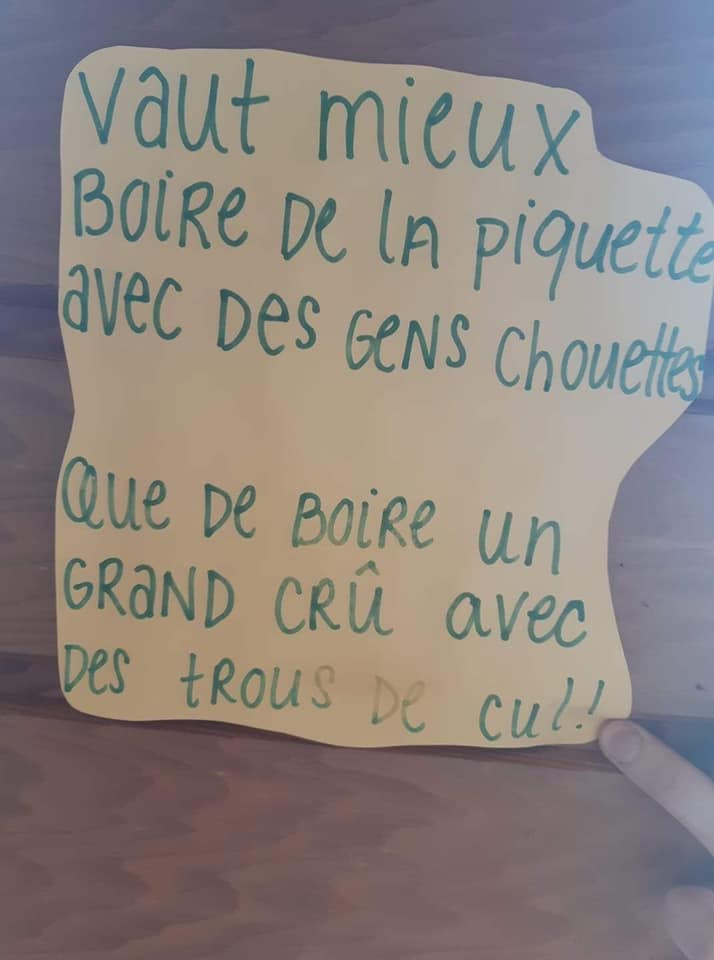 vaut mieux
BOiRe De lA piquette
avec Des GeNS chouettes
Que De BOiRe un
GRaND CRÛ avec
Des tROUS De cul!!